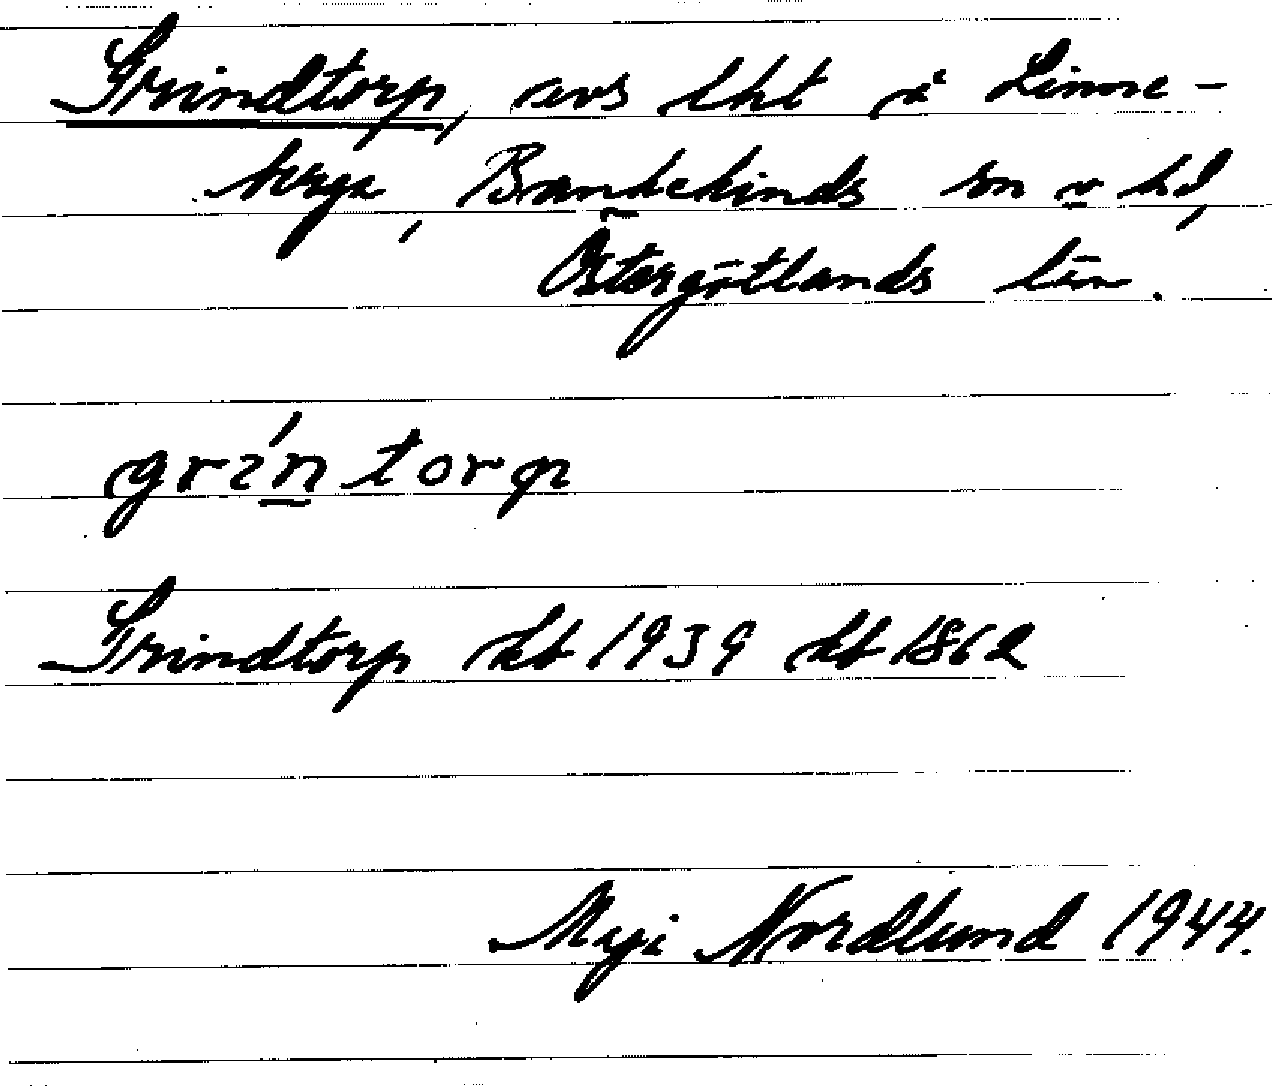 Grindtorp, avs lht i Linne-
berga, Brandekinds sn o hd,
Östergötlands län.
grín torp
Grindtorp Jb 1939 Jb 1862
Maji Nordlund 1944.